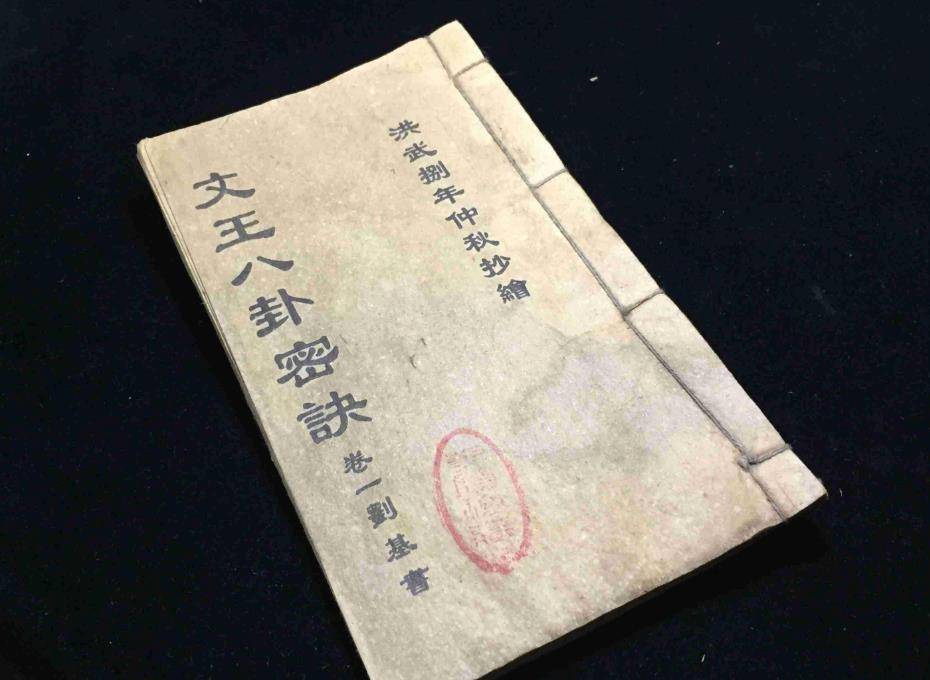 洪武捌年仲秋抄繪
文王八卦密訣 卷一 劉基書